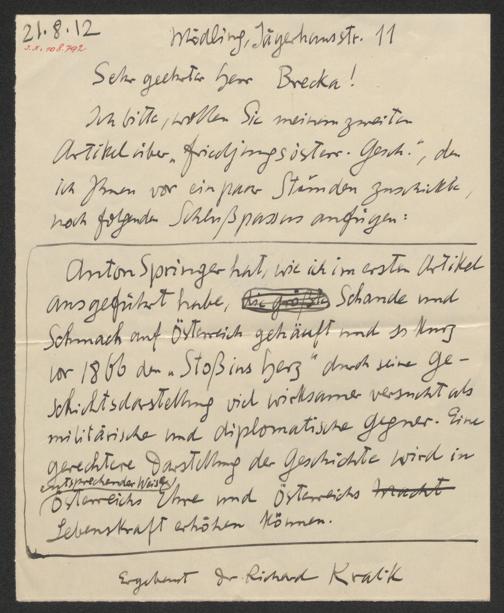 21.8.12
J.N. 108.792
Mödling, Jägerhausstr. 11
Sehr geehrter Herr Brecka!
Ich bitte, wollen Sie meinem zweiten
Artikel über „Friedjungs österr. Gesch.“, den
ich Ihnen vor ein paar Stunden zuschickte,
noch folgenden Schlußpassus anfügen:
Anton Springer hat, wie ich im ersten Artikel
ausgeführt habe, die größte Schande und
Schmach auf Österreich gehäuft und so kurz
vor 1866 den „Stoß ins Herz“ durch seine Ge-
schichtsdarstellung viel wirksamer versucht als
militärische und diplomatische Gegner. Eine
gerechtere Darstellung der Geschichte wird in
entsprechender Weise
Österreichs Ehre und Österreichs Macht
Lebenskraft erhöhen können.
Ergebenst Dr. Richard Kralik